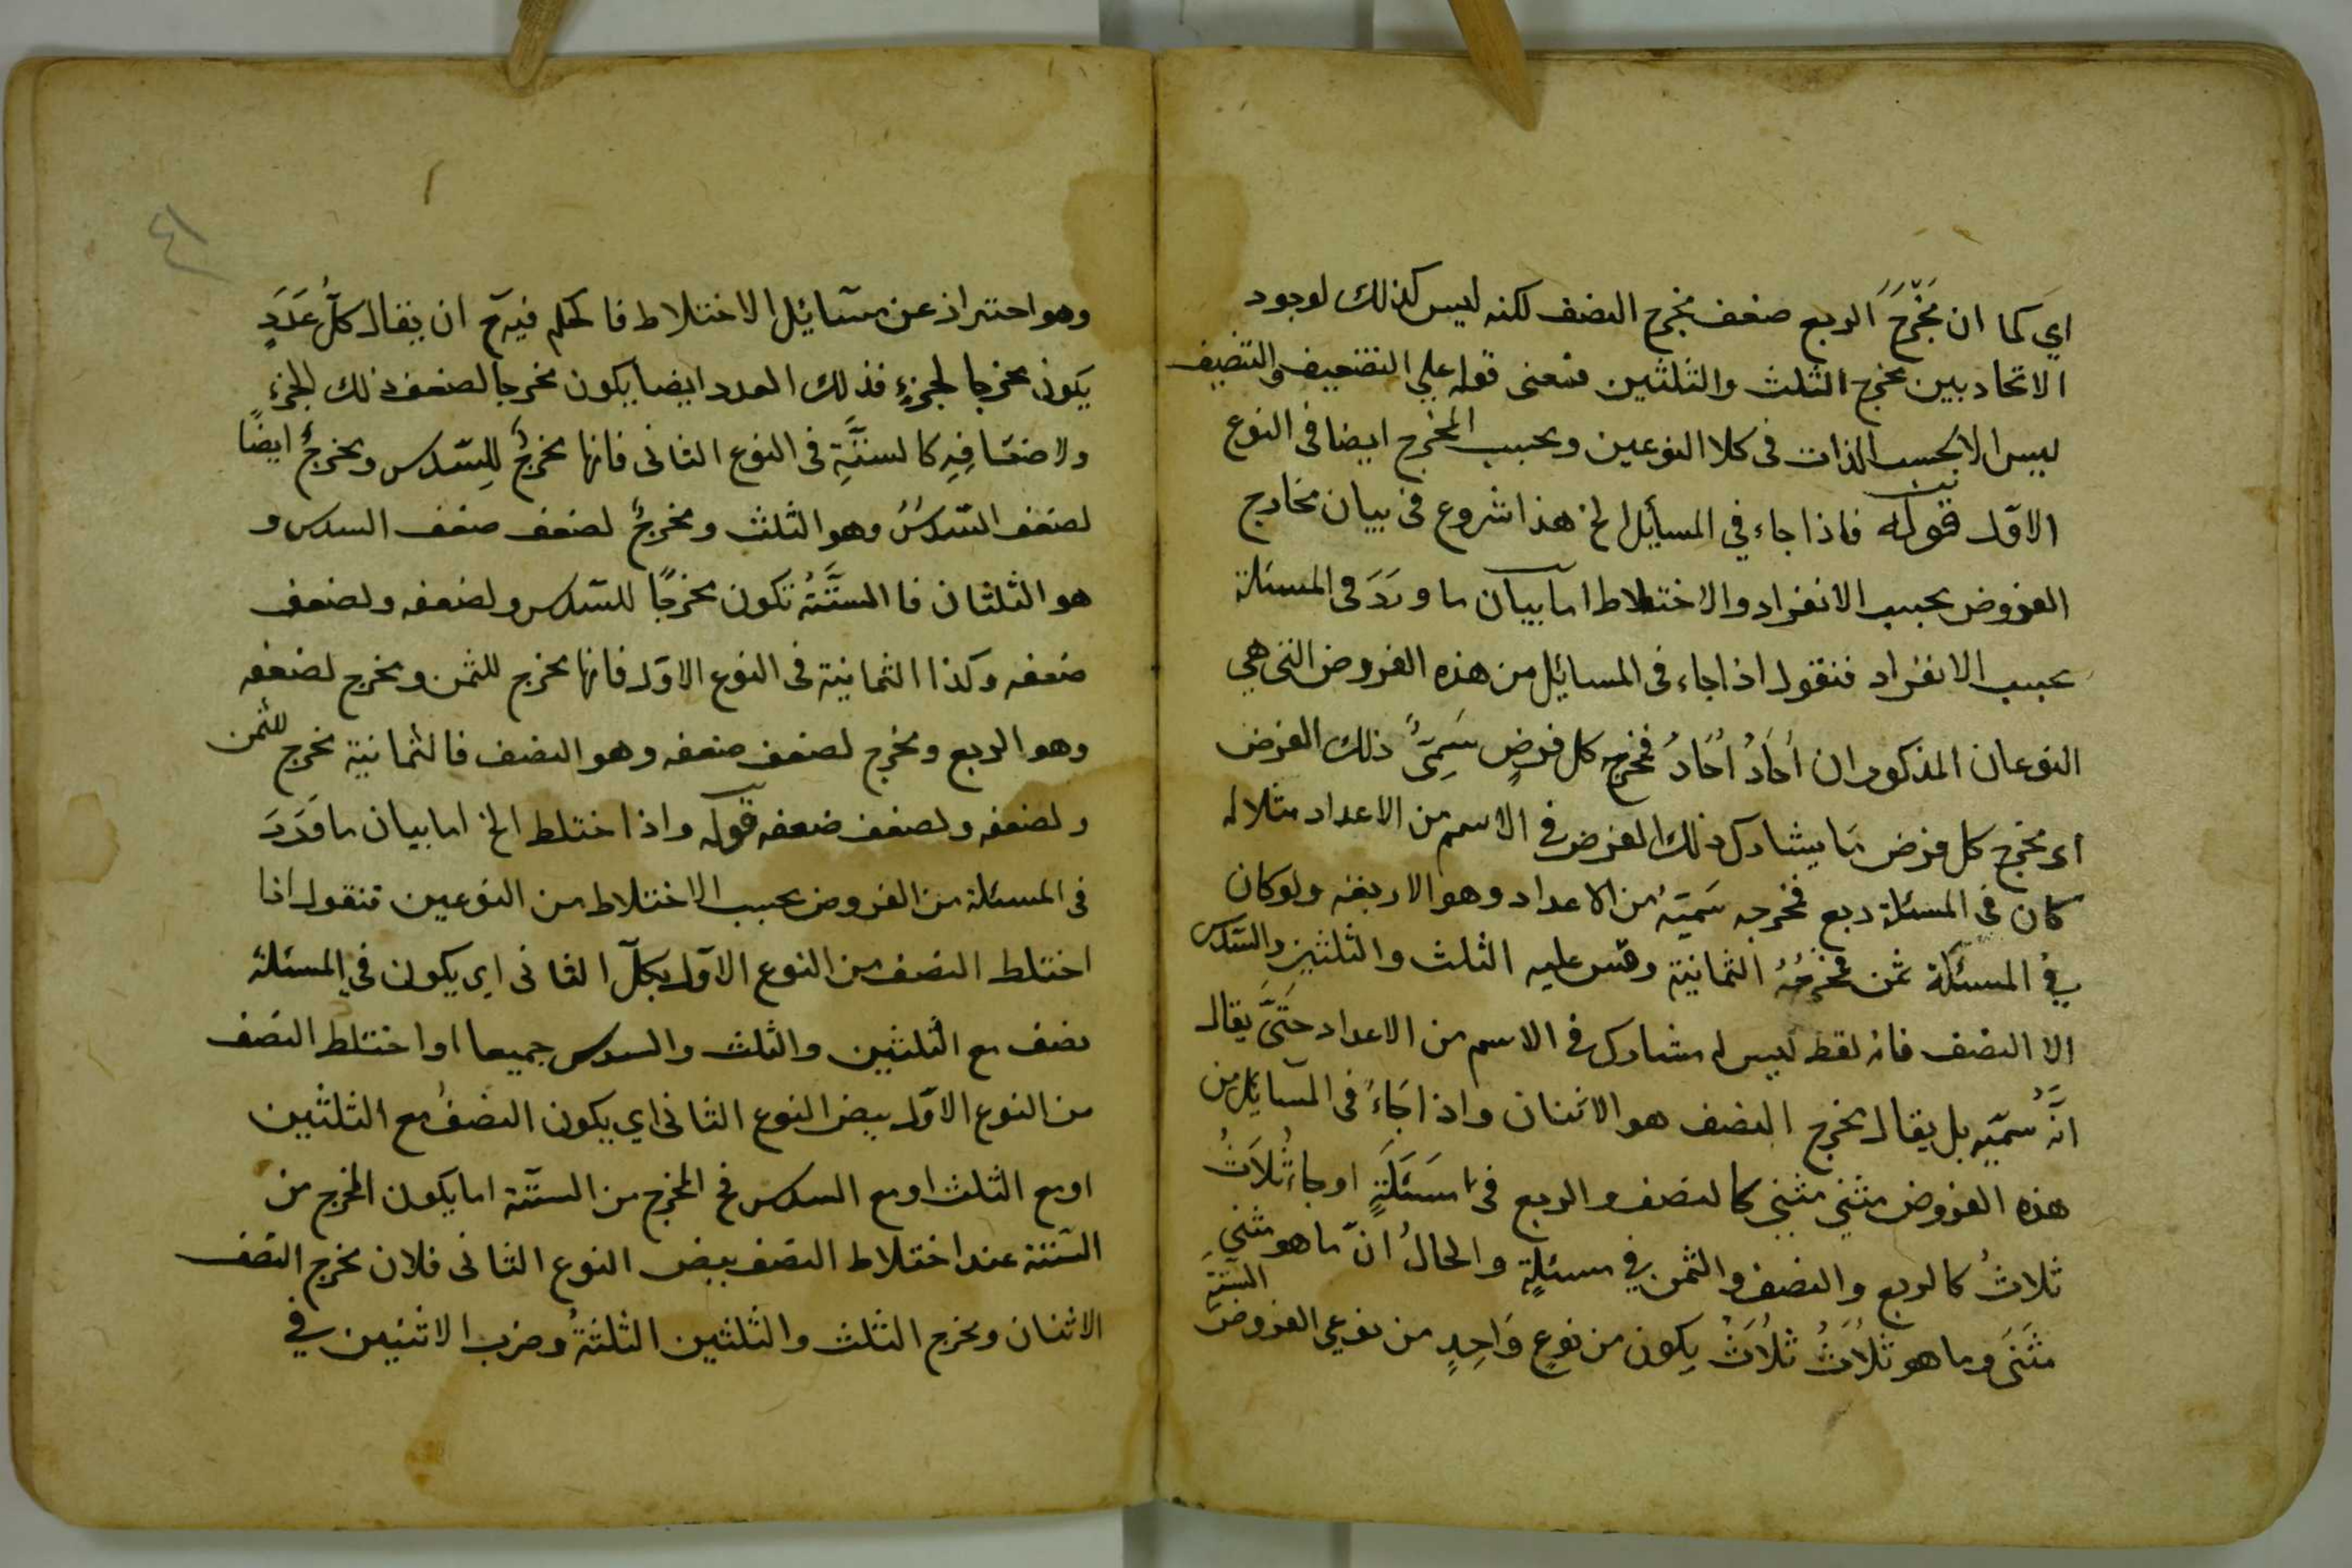 اي كما ان مَخْرَجَ الربع ضعف مخرج النصف لكنه ليس كذلك لوجود
الاتحاد بين مخرج الثلث والثلثين فمعنى قوله علي التضعيف والتنصيف
ليس الا بحسب الذات فى كلا النوعين وبحسب المخرج ايضا فى النوع
الاوّل قوله فاذا جاء في المسأيل الخ هذا شروع فى بيان مخارج
الفروض بحسب الانفراد والاختلاط اما بيان ما وَرَدَ فى المسئلة
بحسب الانفراد فنقول اذا جاء فى المسائل من هذه الفروض التى هي
النوعان المذكوران اُحَادُ اُحَادُ فمخرج كل فرضٍ سَمِىُّ ذلك الفرض
اى مخرج كل فرض مَا يشارك ذلك الفرض في الاسم من الاعداد مثلا لو
كان فى المسئلة ربع فمخرجه سَميّهُ من الاعداد وهو الاربعة ولو كان
في المسئلة ثمن فمخرجُهُ الثمانية وقس عليه الثلث والثلثين والسّدس
الا النصف فانه لفظ ليس له مشارك فى الاسم من الاعداد حَتَّى يقال
انَّهُ سميّه بل يقال مخرج النصف هو الاثنان واذا جَاءَ فى المسَايل من
هذه الفروض مثني مثنى كالنصف والربع فى مَسَئَلَةٍ او جاء ثُلاَثُ
ثلاثُ كالربع والنصف والثمن في مسئلةٍ والحالُ انّ ما هو مثني
مثَنَى وما هو ثُلاَثُ ثلُاَثُ يكون من نوعٍ وَاحِدٍ من نوعي الفروض الستّةِ
وهو احتراز عن مسَايُل الاختلاط فالحكم فيه ح ان يقال كلُّ عَدَدٍ
يَكون مخرجا لجزءٍ فذلك العدد ايضا يكون مخرجا لضعف ذلك الجزءِ
ولاضعَافِهِ كالستَّةِ فى النوع الثانى فانها مخرجُ للِسّدس ومخرجُ ايضًا
لضعف السّدسُ وهو الثلث ومخرجُ لضعف ضعف السدس و
هو الثلثان فا الستَّتُهُ تكون مخرجًا للسّدس ولضعفه ولضعف
ضعفه وكذا الثمانية فى النوع الاوّل فانها مخرج للثمن ومخرج لضعفه
وهو الربع ومخرج لضعف ضعفه وهو النصف فالثمانية مخرج للثمن
ولضعفه ولضعف ضعفه قوله واذا اختلط الخ اما بيان ما وَرَدَ
فى المسئلة من الفروض بحسب الاختلاط من النوعين فنقول اذا
اختلط النصف من النوع الاوّل بكلّ الثانى اي يكون في المسئلة
نصف مع الثلثين والثلث والسدس جميعا او اختلط النصف
من النوع الاوّل ببعض النوع الثانى اي يكون النصفُ مع الثلثين
او مع الثلث او مع السدس فح المخرج من الستّة اما يكون المخرج من
الستّة عند اختلاط النصف ببعض النوع الثانى فلان مخرج النصف
الاثنان ومخرج الثلث والثلثين الثلثةُ وضرب الاثنين في